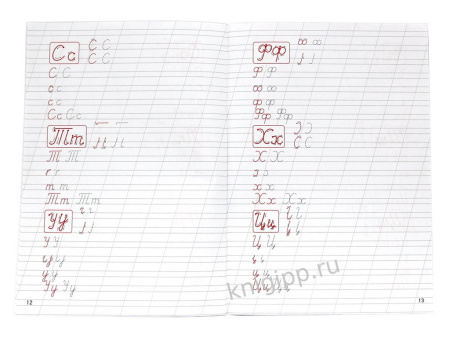 Сс С С
С С
С С
С С
с с
с с
Сс Сс
Тт
Т Т
т т
Тт Тт
Уу
У У
у у
Уу Уу
12
Фф
ф ф
Ф Ф
ф ф
Фф Фф
Хх
Х Х
х х
Хх Хх
Цц
Ц Ц
ц ц
Цц Цц
13
knigipp.ru